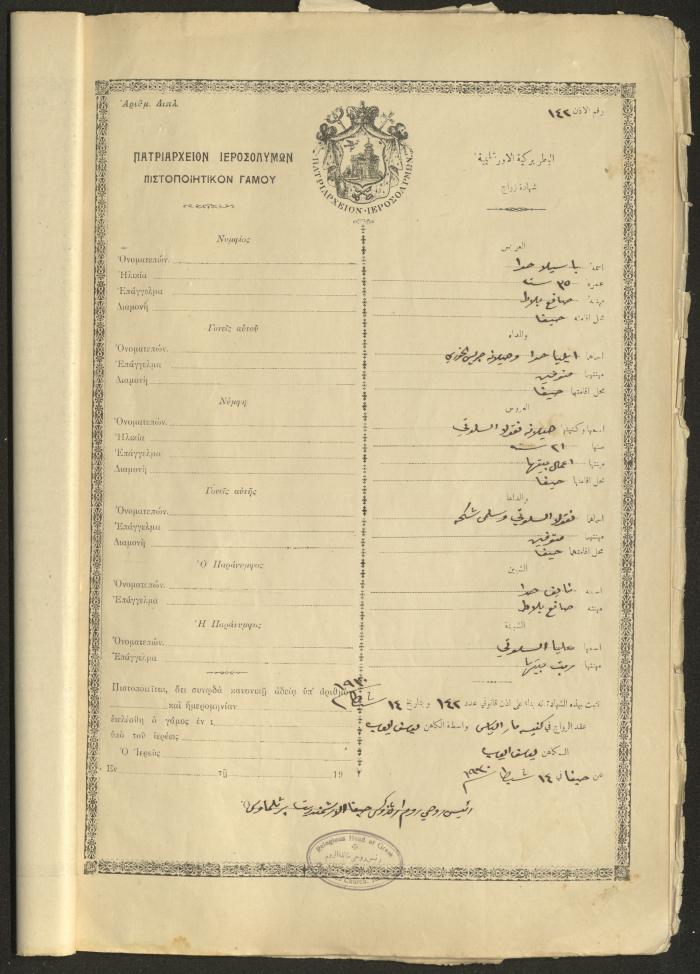 Ἀριθμ. Διπλ.
رقم الاذن ١٤٢
ΠΑΤΡΙΑΡΧΕΙΟΝ ΙΕΡΟΣΟΛΥΜΩΝ
ΠΙΣΤΟΠΟΙΗΤΙΚΟΝ ΓΑΜΟΥ
ΠΑΤΡΙΑΡΧΕΙΟΝ·ΙΕΡΟΣΟΛΥΜΩΝ
البطريركية الاورشليمية
شهادة زواج
Νυμφίος
Ὀνοματεπών.
Ἡλικία
Ἐπάγγελμα
Διαμονὴ
Γονεῖς αὐτοῦ
Ὀνοματεπών.
Ἐπάγγελμα
Διαμονὴ
Νύμφη
Ὀνοματεπών.
Ἡλικία
Ἐπάγγελμα
Διαμονὴ
Γονεῖς αὐτῆς
Ὀνοματεπών.
Ἐπάγγελμα
Διαμονὴ
Ὁ Παράνυμφος
Ὀνοματεπών.
Ἐπάγγελμα
Ἡ Παράνυμφος
Ὀνοματεπών.
Ἐπάγγελμα
Πιστοποιεῖται, ὅτι συνῳδὰ κανονικῇ ἀδείᾳ ὑπ' ἀριθμὸν
καὶ ἡμερομηνίαν
ἐτελέσθη ὁ γάμος ἐν τ
ὑπὸ τοῦ ἱερέως
Ὁ Ἱερεὺς
Ἐν τῇ 19
العريس
اسمه باسيلا حدا
عمره ٣٥ سنة
مهنته صانع بلاط
محل اقامته حيفا
والداه
اسماهما ايليا حدا و جريس الخوري
مهنتهما متوفين
محل اقامتهما حيفا
العروس
اسمها وكنيتها هيلانه نقولا السلوتي
سنها ٢١ سنة
مهنتها اعمال بيتها
محل اقامتها حيفا
والداها
اسماهما نقولا السلوتي و سلمى
مهنتهما متوفين
محل اقامتهما حيفا
الشبين
اسمه حدا
مهنته صانع بلاط
الشبينة
اسمها عليا السلوتي
مهنتها ربة بيتها
١٩٣٠
ثابت بهذه الشهادة انه بناء على اذن قانوني عدد ١٤٢ و بتاريخ ١٤ شباط
عقد الزواج في كنيسة مار الياس بواسطة الكاهن
الكاهن
عن حيفا في ١٤ شباط ١٩٣٠
رئيس روحي روم ارثوذكس حيفا الارشمندريت
Religious Head of Greek
Church,